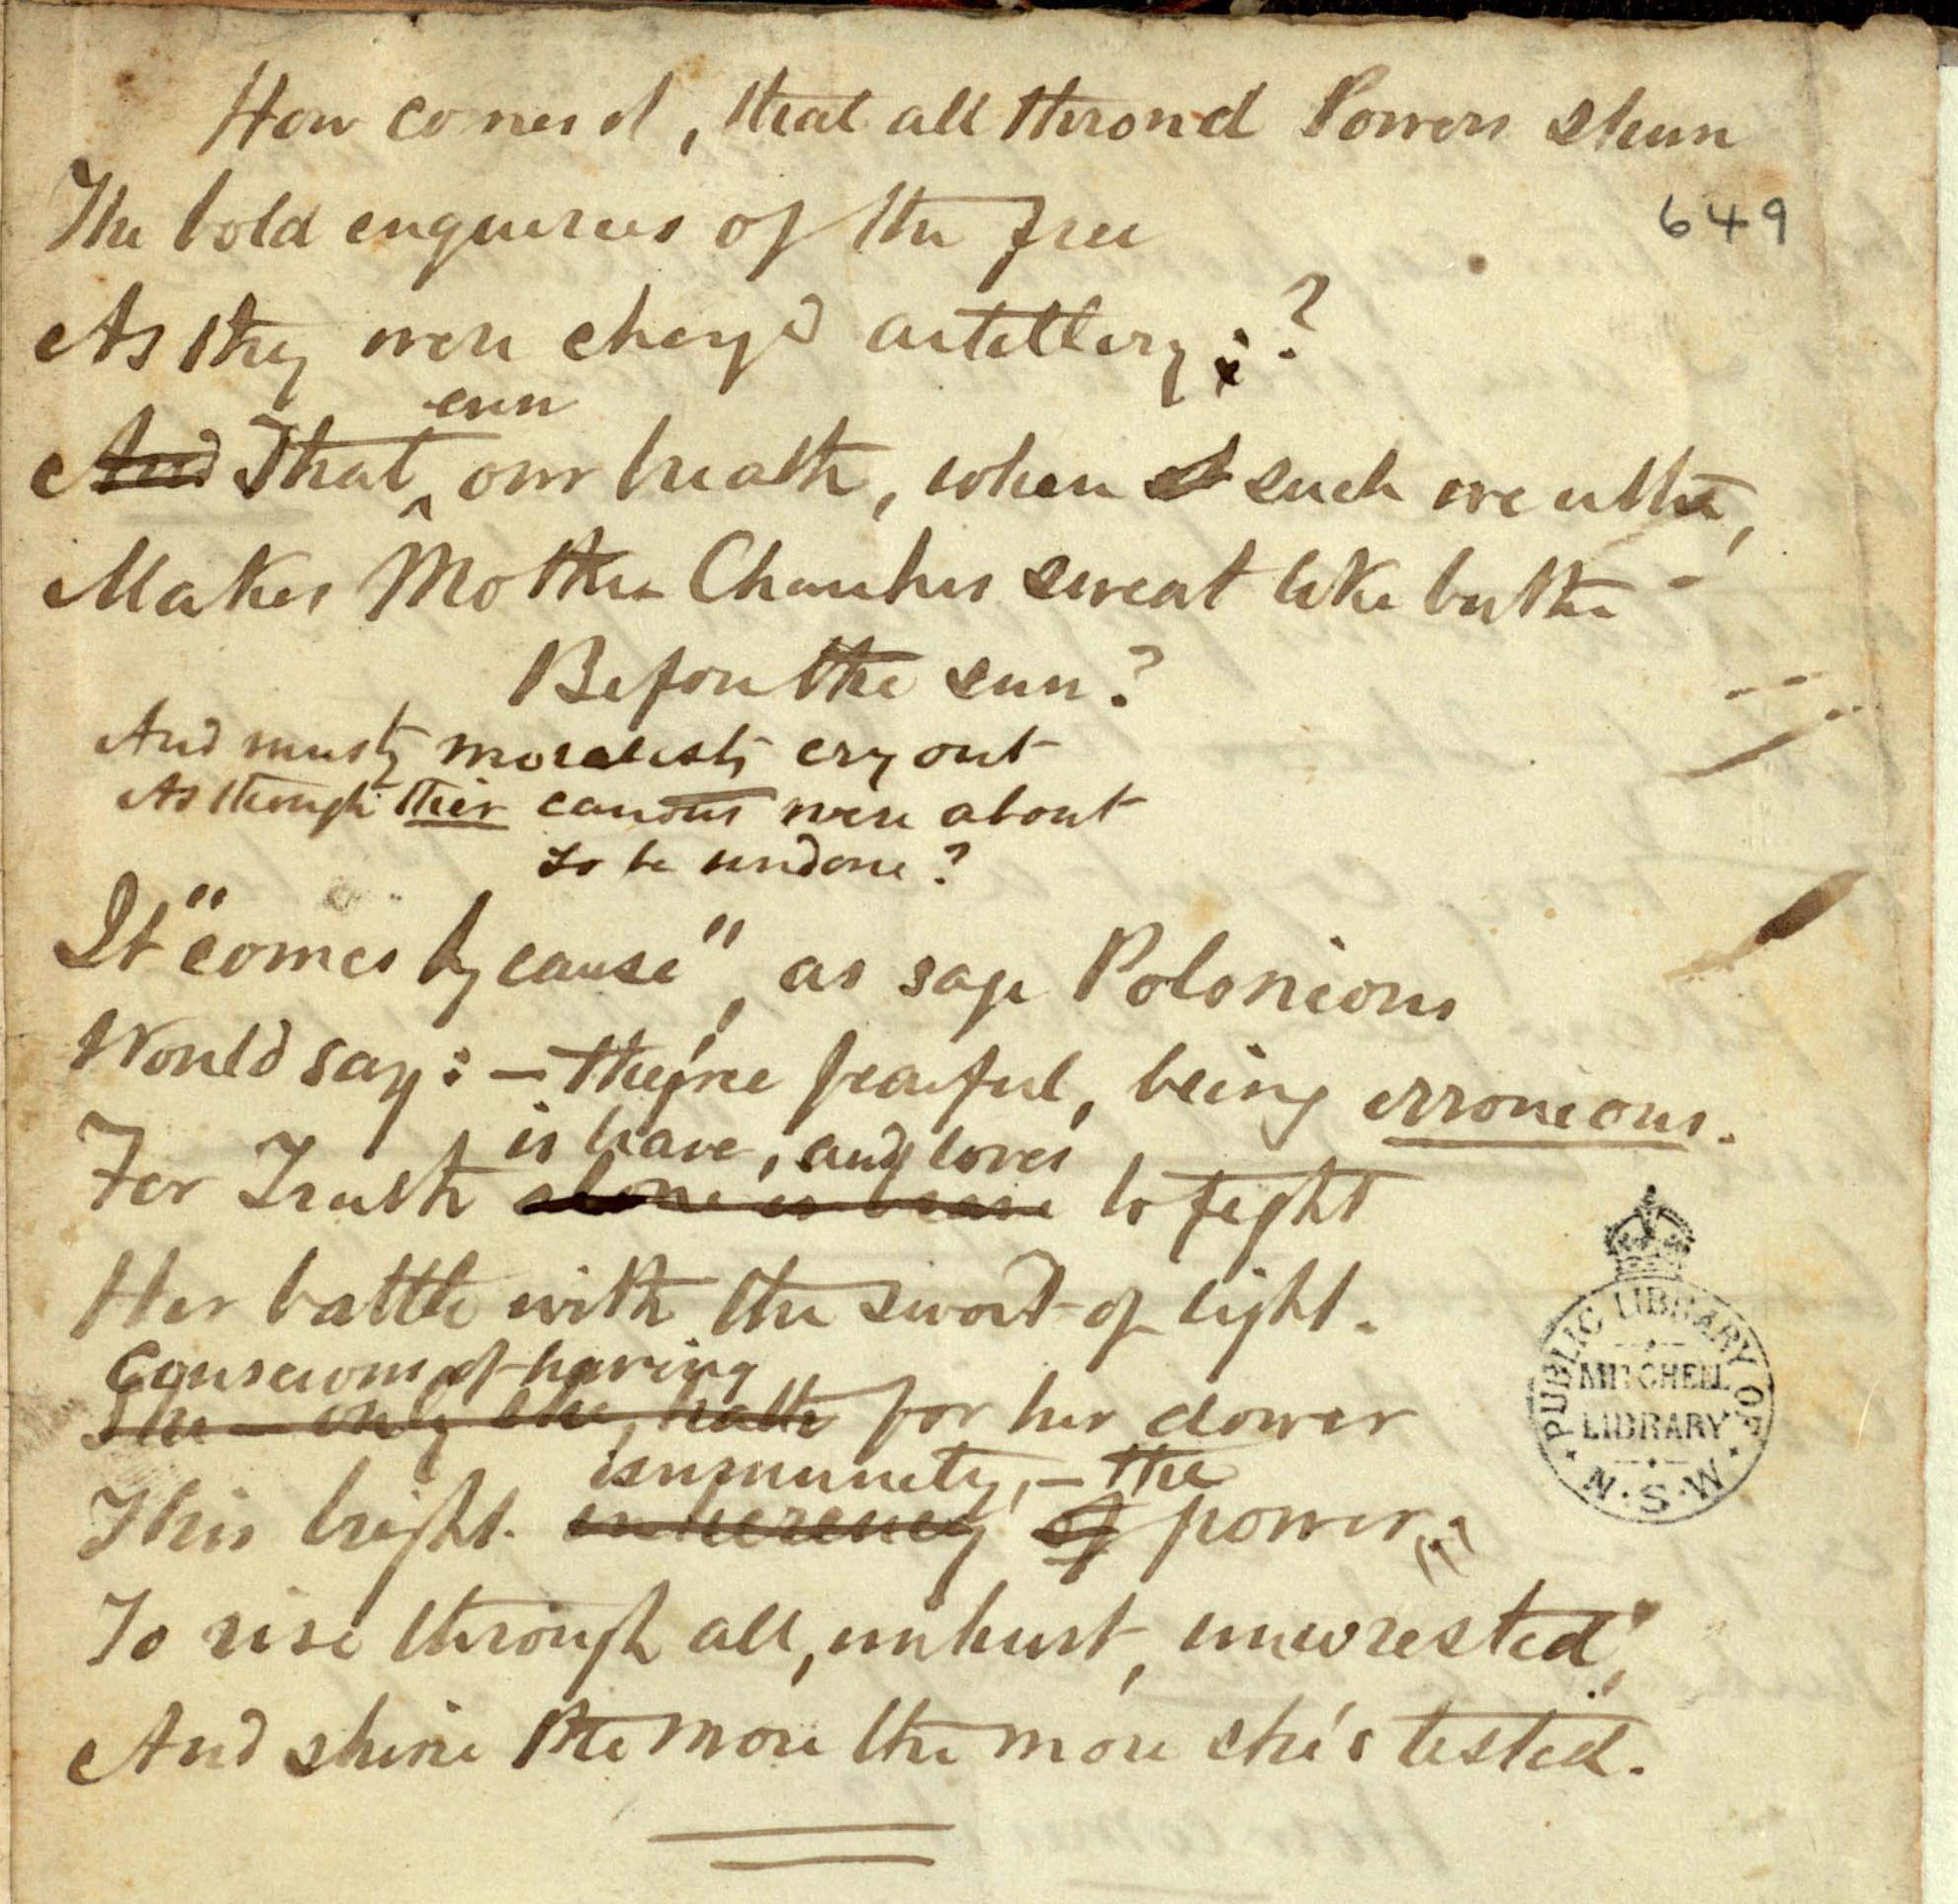 How comes it, that all thron'd Powers shun
The bold enquiries of the free
649
As they were charg'd artillery;?
even
And That our breath, when such we utter,
Makes Mother Churches sweat like butter
Before the sun?
And musty moralists cry out
As though their canons were about
To be undone?
It "comes by cause", as sage Polonious
Would say: — they're fearful, being erroneous.
is brave, and loves
For Truth alone is brave to fight
Her battle with the sword of light.
Conscious of having
She — only she, hath for her dower
This bright inherency of power;
immunity, — the
To rise through all, unhurt, unwrested,
And shine the more the more she's tested.
PUBLIC LIBRARY OF
MITCHELL
LIBRARY
N.S.W.